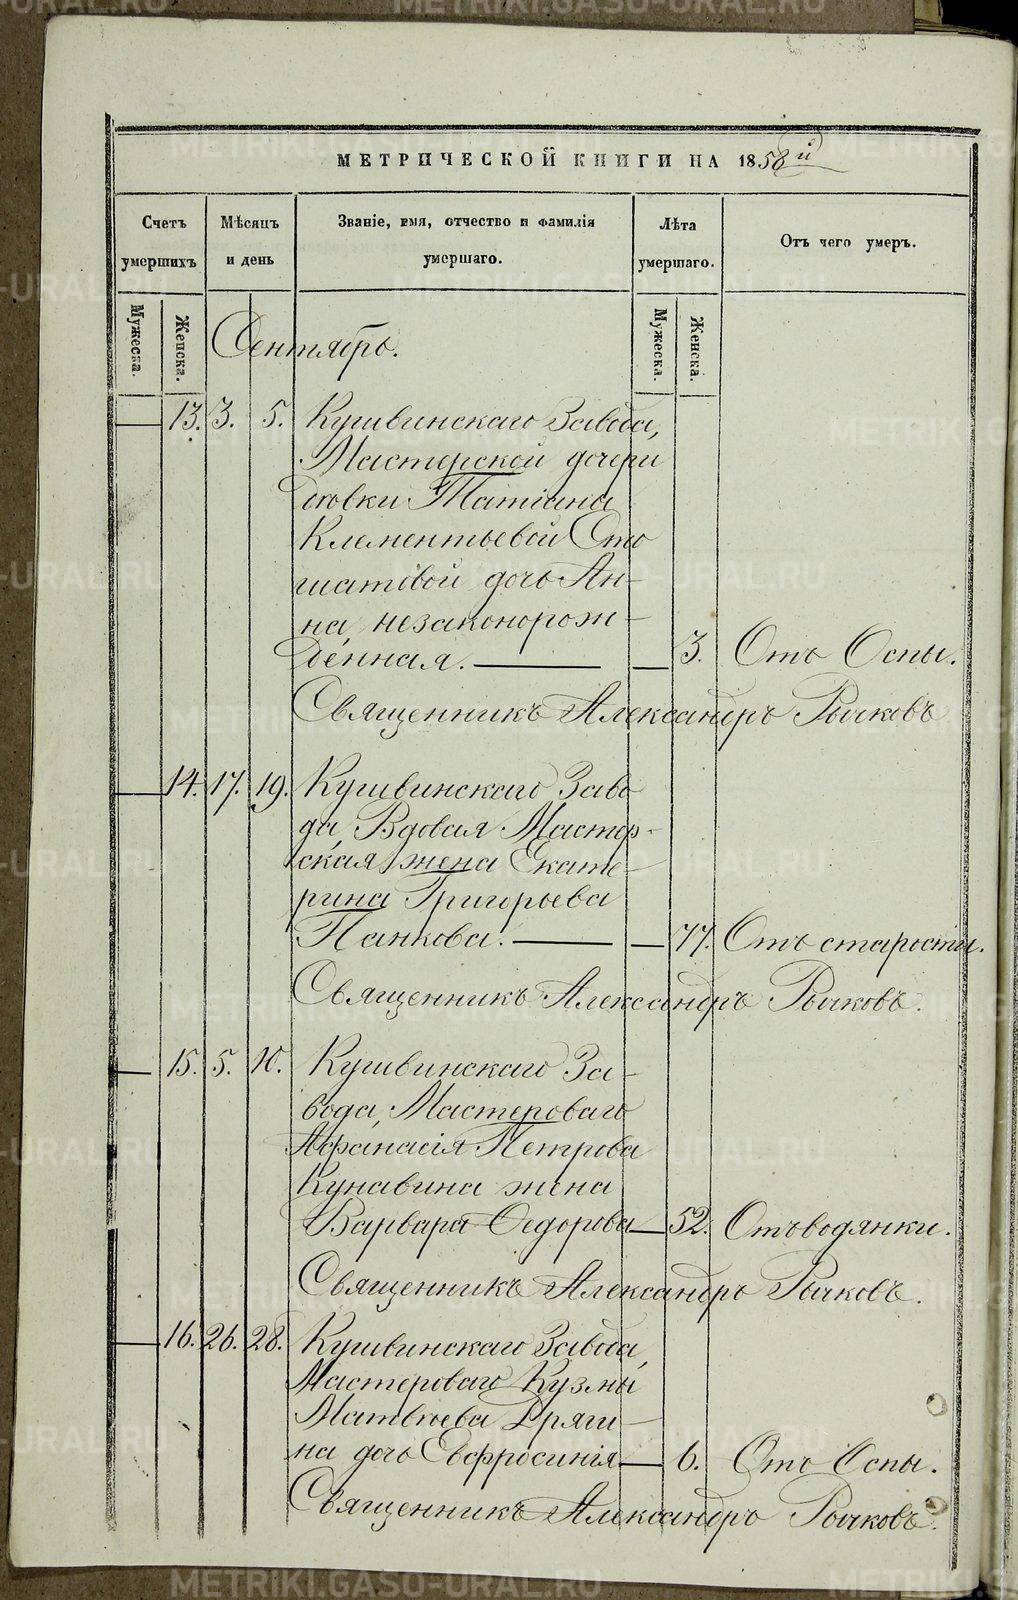 МЕТРИЧЕСКОЙ КНИГИ НА 1858й
Счетъ умершихъ
Мѣсяцъ и день
Званіе, имя, отчество и фамилія умершаго.
Лѣта умершаго.
Отъ чего умеръ.
Мужеска.
Женска.
Мужеска.
Женска.
Сентябрь.
13. 3. 5. Кушвинскаго Завода,
Мастерской дочери
девки Татіаны
Клементьевой
дочь Ан-
на, незаконорож-
денная. 3. Отъ Оспы.
Священникъ Александръ Рычковъ
14. 17. 19. Кушвинскаго Заво
да, Вдовая Мастер-
ская жена Екате-
рина Григорьева
Панкова. 77. Отъ старости.
Священникъ Александръ Рычковъ.
15. 5. 10. Кушвинскаго За-
вода, Мастероваго
Афанасія Петрова
Кунавина жена
Варвара Федорова 52. Отъ водянки.
Священникъ Александръ Рычковъ.
16. 26. 28. Кушвинскаго Завода,
Мастероваго Кузмы
Матвѣева Дряги-
на дочь Евфросинія 6. Отъ Оспы.
Священникъ Александръ Рычковъ.
METRIKI.GASO-URAL.RU